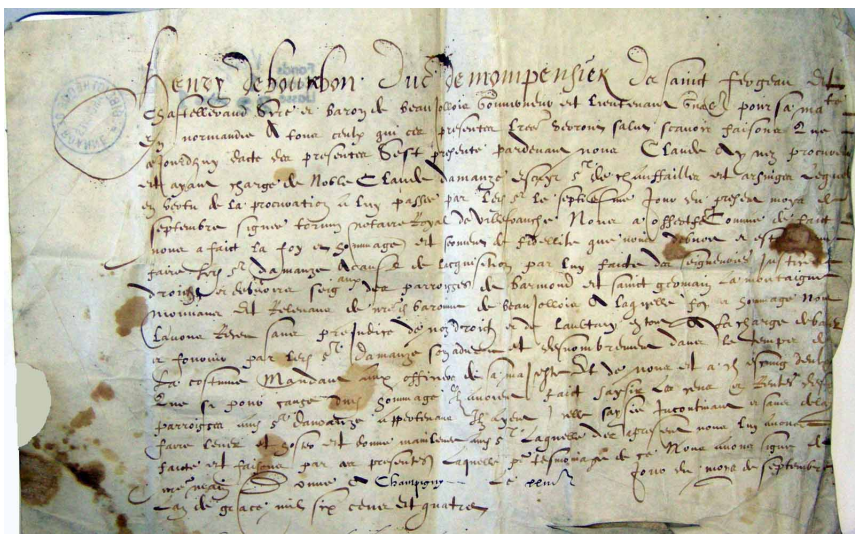 Henry de bourbon Duc de mompensier de sainct fergeau et
Chastelleraud Sire et baron de beaujollois Gouverneur et Lieutenant pour sa ma.te
En normandie A tous ceulx qui ces presentes lres verront salut scavoir faisons Que
aejourdhuy datte des presentes S'est presente pardevant nous Claude procureur
et ayant charge de Noble Claude damanze escuyr Sr de chauffailles et
en vertu de la procuration a luy passee par led. Sr le septiesme Jour du present moys de
septembre signee notaire Royal de Villefranche Nous a offert Comme de faict
nous a faict la foy et hommage et serment de fidellite que nous
faire led. Sr damanze a cause de lacquisition par luy faicte des seigneuries Justice
droictz et debvoirs des parroisses de barmond et sainct germain la montaigne
mouvans et Relevans de baronnie de beaujollois A laquelle foy et hommage nous
Lavons Receu sans prejudice de noz droictz et de laultruy A la charge de
et fournir par led. Sr damanze son adveu et desnombrement dans le temps de
La coustume Mandons aux officiers de sa majeste Et de nous
Que sy pour cause dud. hommage Ilz avoient faict saysir les cens et Rentes
parroisses aud. Sr Damanze appartenans Ilz ayent saysie Incontinant et sans delay
faire lever et oster et donner mainlevee aud. Sr Laquelle des apresent nous luy avons
faicte et faisons par ces presentes Lesquelles pr tesmoignage de ce Nous avons signe de
Donne A Champigny Le Jour du mois de septembre
Lan de grace mil six cens et quatre